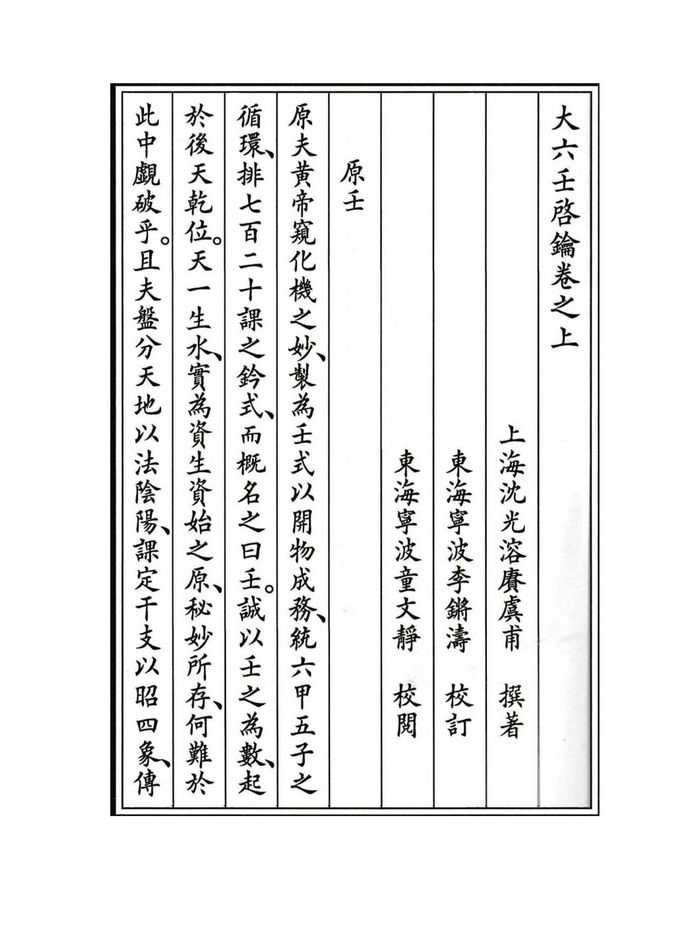 大六壬啓鑰卷之上
上海沈光溶賡虞甫 撰著
東海寧波李鏘濤 校訂
東海寧波童文靜 校閱
原壬
原夫黃帝窺化機之妙、製為壬式以開物成務、統六甲五子之
循環、排七百二十課之鈐式、而概名之曰壬。誠以壬之為數、起
於後天乾位。天一生水、實為資生資始之原、秘妙所存、何難於
此中覷破乎。且夫盤分天地以法陰陽、課定干支以昭四象、傳